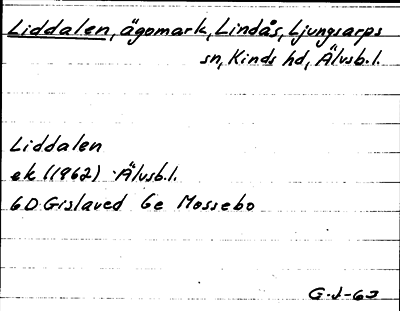 Liddalen, ägomark, Lindås, Ljungsarps
sn, Kinds hd, Älvsb.l.
Liddalen
ek (1962) Älvsb.l.
6D Gislaved 6e Mossebo
G-J-63